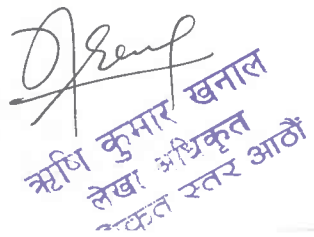 ऋषि कुमार खनाल
लेखा अधिकृत
स्तर आठौं